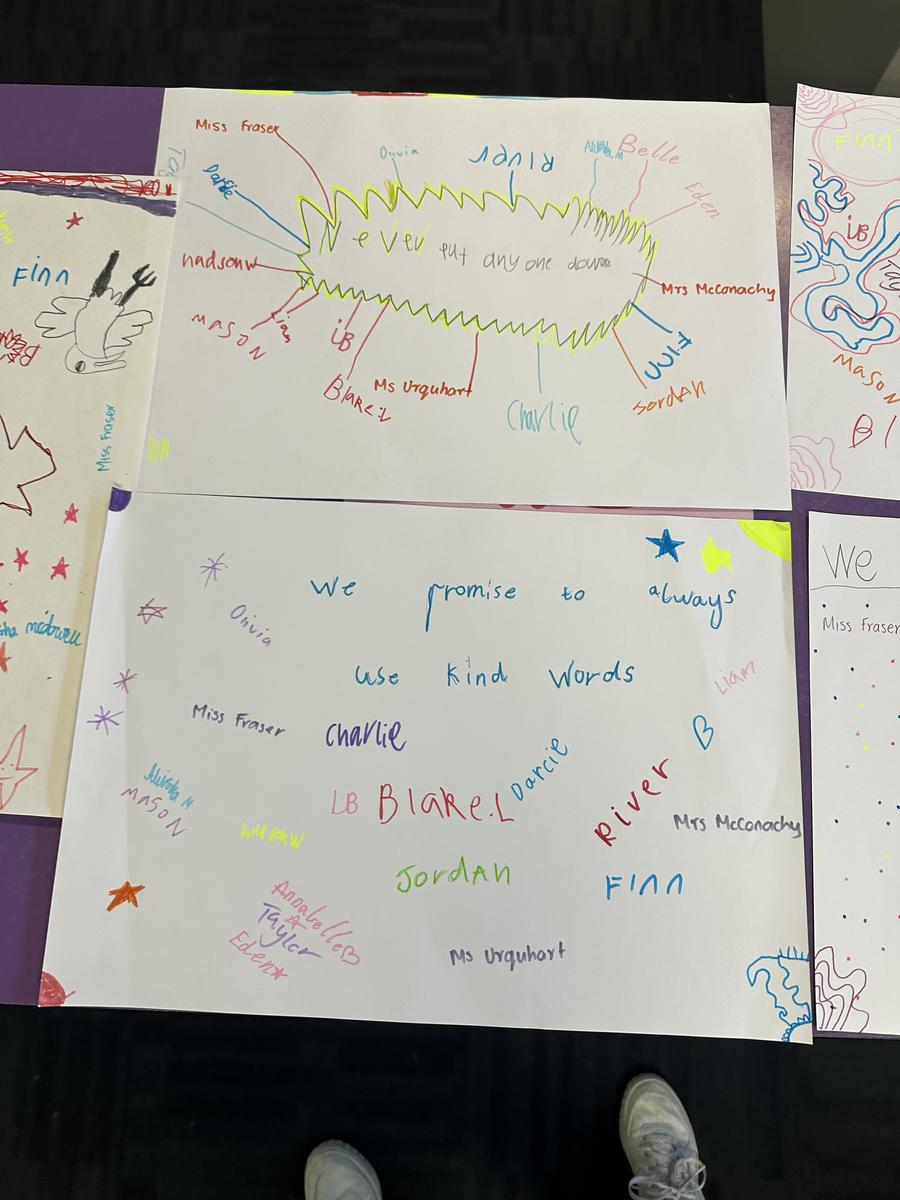 Miss Fraser
Olivia
River
Alisha M
Belle
Eden
Darcie
Never put any one down
hadsonw
Mrs McConachy
MASON
Liam
LB
Blake.L
Ms Urquhart
Charlie
Finn
Jordan
We promise to always
use kind words
Olivia
Liam
Miss Fraser
Charlie
B
Darcie
Alisha M
MASON
LB
Blake.L
River
Mrs McConachy
hadsonw
Jordan
Finn
Annabelle B
Taylor
Eden
Ms Urquhart
Finn
Miss Fraser
mcdowell
Finn
LB
MASON
Bl
We
Miss Fraser